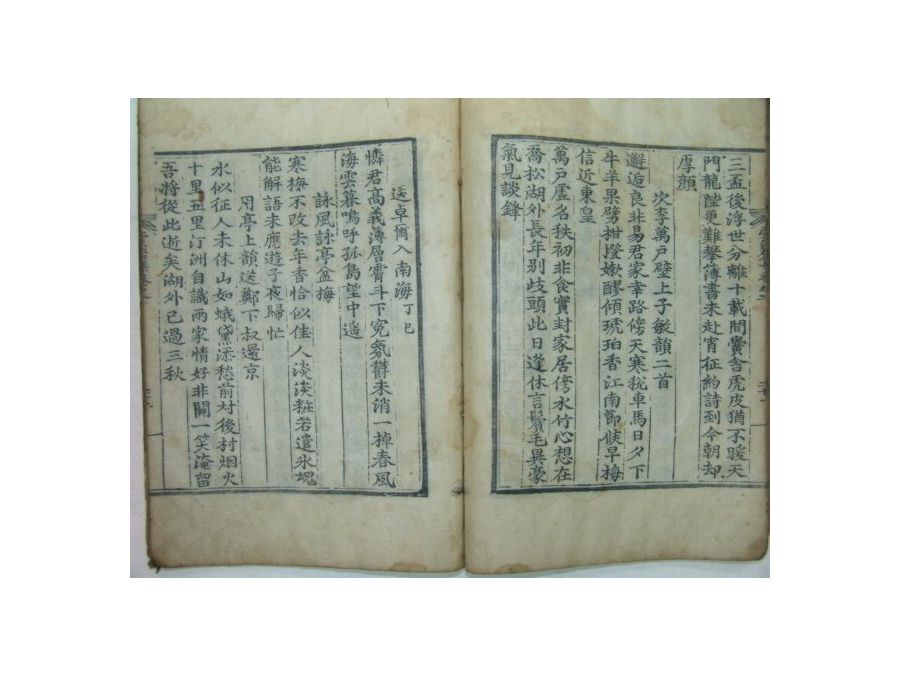 三盃後浮世分離十載間黌舍虎皮猶不暖天
門龍陛更難攀簿書未赴宵征約詩到今朝却
厚顏
次李萬戶壁上子敏韻二首
邂逅良非易君家幸路傍天寒稅車馬日夕下
牛羊果劈柑橙嫩醪傾琥珀香江南節候早梅
信近東皇
萬戶虛名秩初非食實封家居傍水竹心想在
喬松湖外長年別歧頭此日逢休言鬢毛異豪
氣見談鋒
送卓爾入南海丁巳
憐君高義薄層霄斗下冤氛鬱未消一掉春風
海雲暮嗚呼孤島望中遙
詠風詠亭盆梅
寒梅不改去年香恰似佳人淡淡粧若遣氷魂
能解語未應遊子夜歸忙
用亭上韻送鄭下叔還京
水似征人未休山如蛾黛添愁前村後村烟火
十里五里汀洲自識兩家情好非關一笑淹留
吾將從此逝矣湖外已過三秋